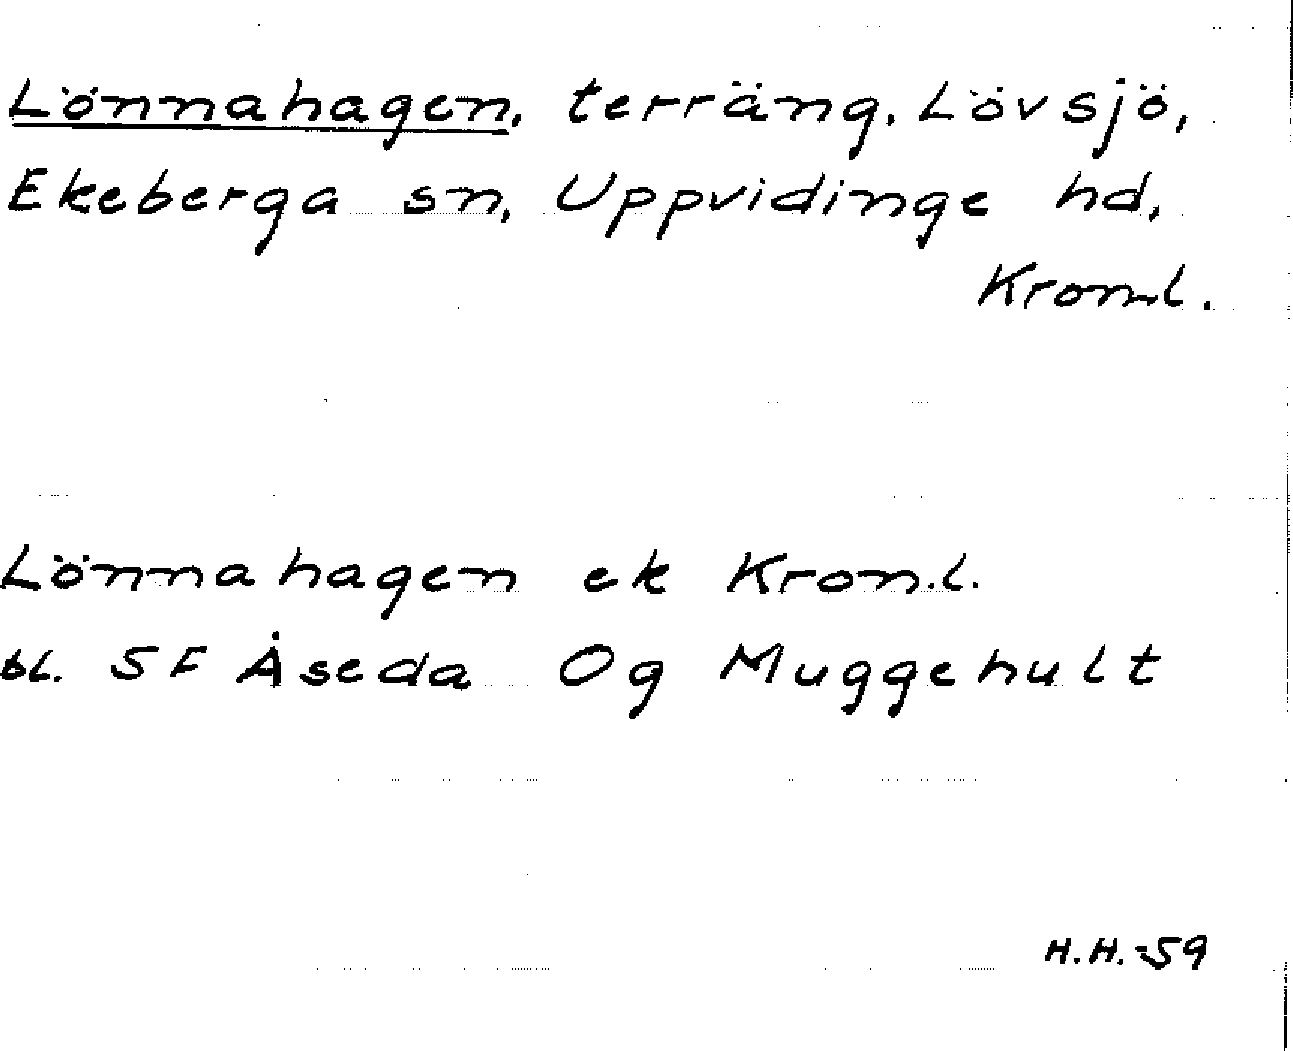 Lönnahagen, terräng, Lövsjö,
Ekeberga sn, Uppvidinge hd,
Kron.l.
Lönnahagen ek Kron.l.
bl. 5F Åseda Og Muggehult
H.H.-59